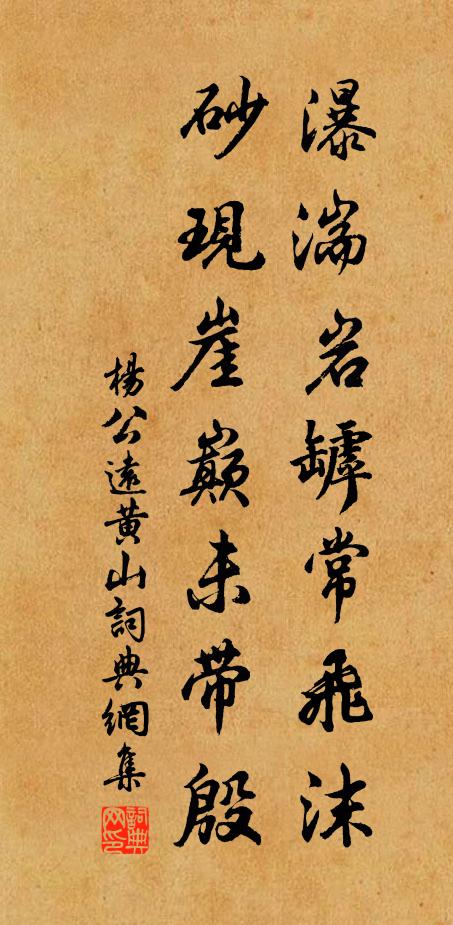 瀑湍岩罅常飛沫
砂現崖巔未帶殷
楊公遠黄山詞典網集
詞典网印